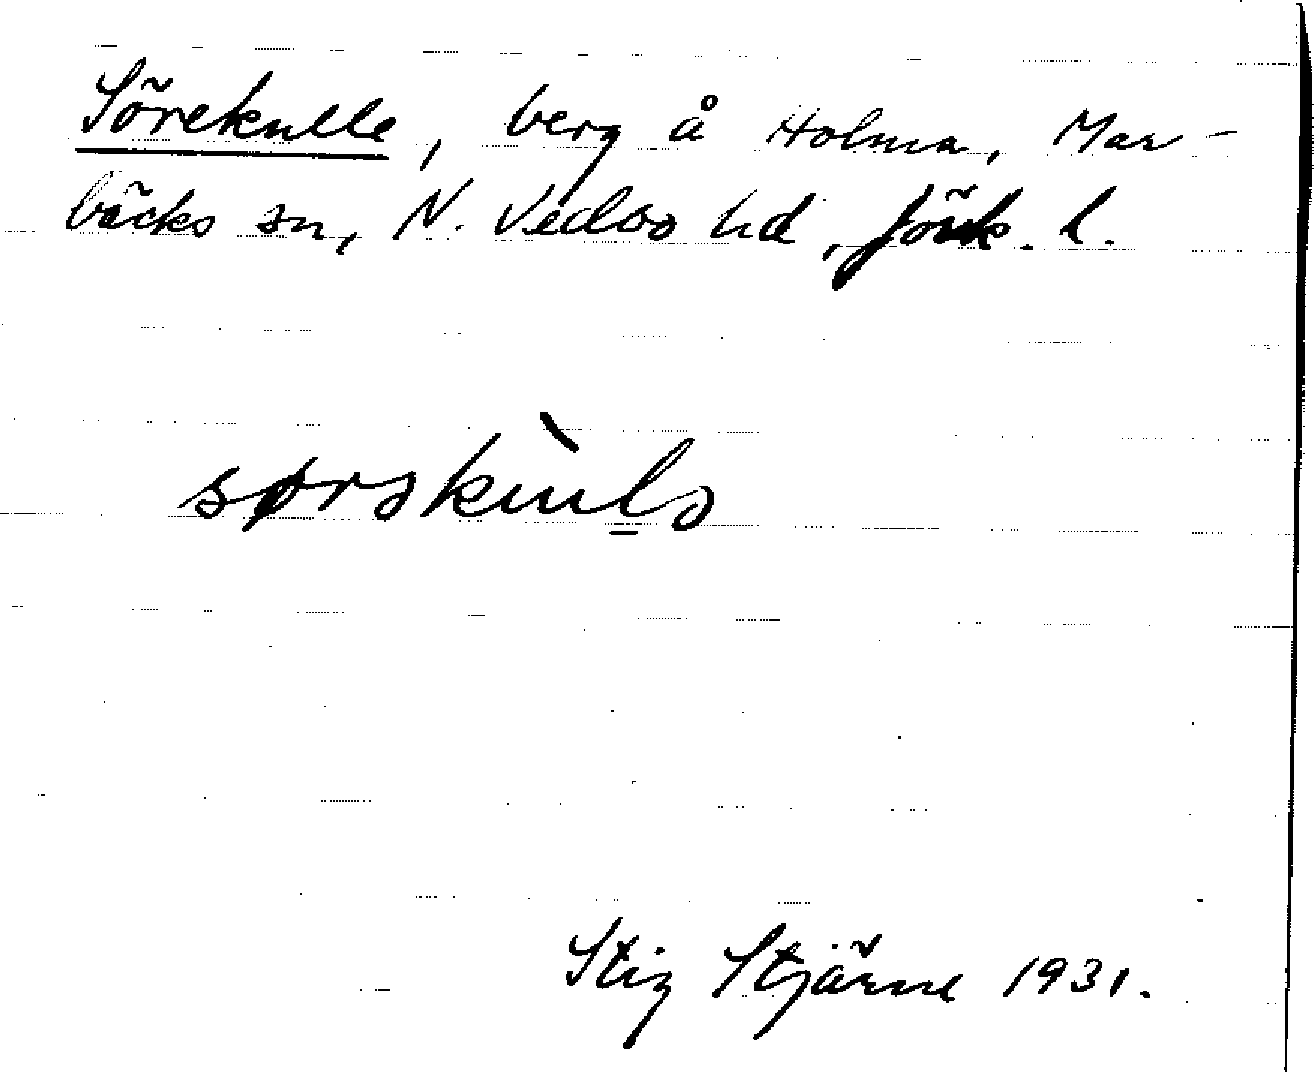 Sörekulle, berg å Holma, Mar-
bäcks sn, N. Vedbo hd, Jönk. l.
sørəkùlə
Stig Stjärne 1931.